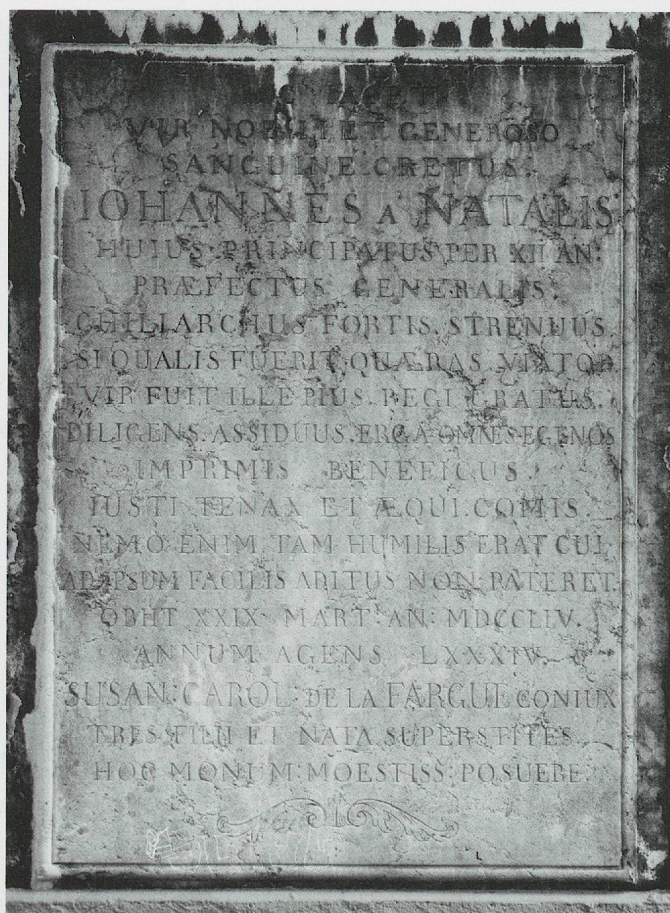 VIR NOBILI ET GENEROSO
SANGUINE CRETUS.
IOHANNES A NATALIS
HUIUS PRINCIPATUS PER XII AN:
PRÆFECTUS GENERALIS.
CHILIARCHUS FORTIS. STRENUUS.
SI QUALIS FUERIT, QUÆRAS VIATOR
VIR FUIT ILLE PIUS. REGI GRATUS.
DILIGENS. ASSIDUUS. ERGA OMNES EGENOS
IMPRIMIS BENEFICUS.
IUSTI TENAX ET ÆQUI. COMIS.
NEMO ENIM TAM HUMILIS ERAT CUI
AD IPSUM FACILIS ADITUS NON PATERET.
OBIIT XXIX MART: AN: MDCCLIV.
ANNUM AGENS LXXXIV.
SUSAN: CAROL: DE LA FARGUE CONIUX
TRES FILII ET NATA SUPERSTITES
HOC MONUM: MOESTISS: POSUERE.